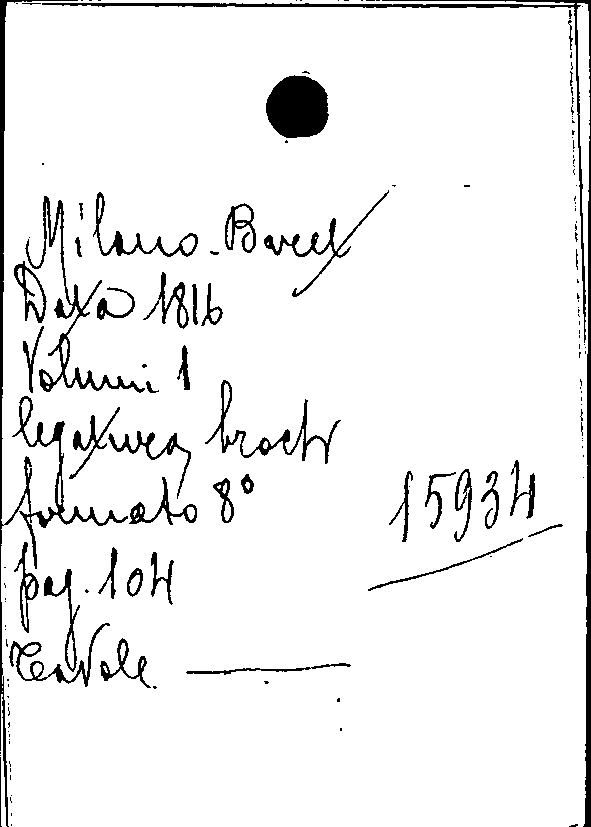 Milano. Baret
Data 1816
Volumi 1
legatura broch
formato 8°
15934
pag. 104
Tavole —